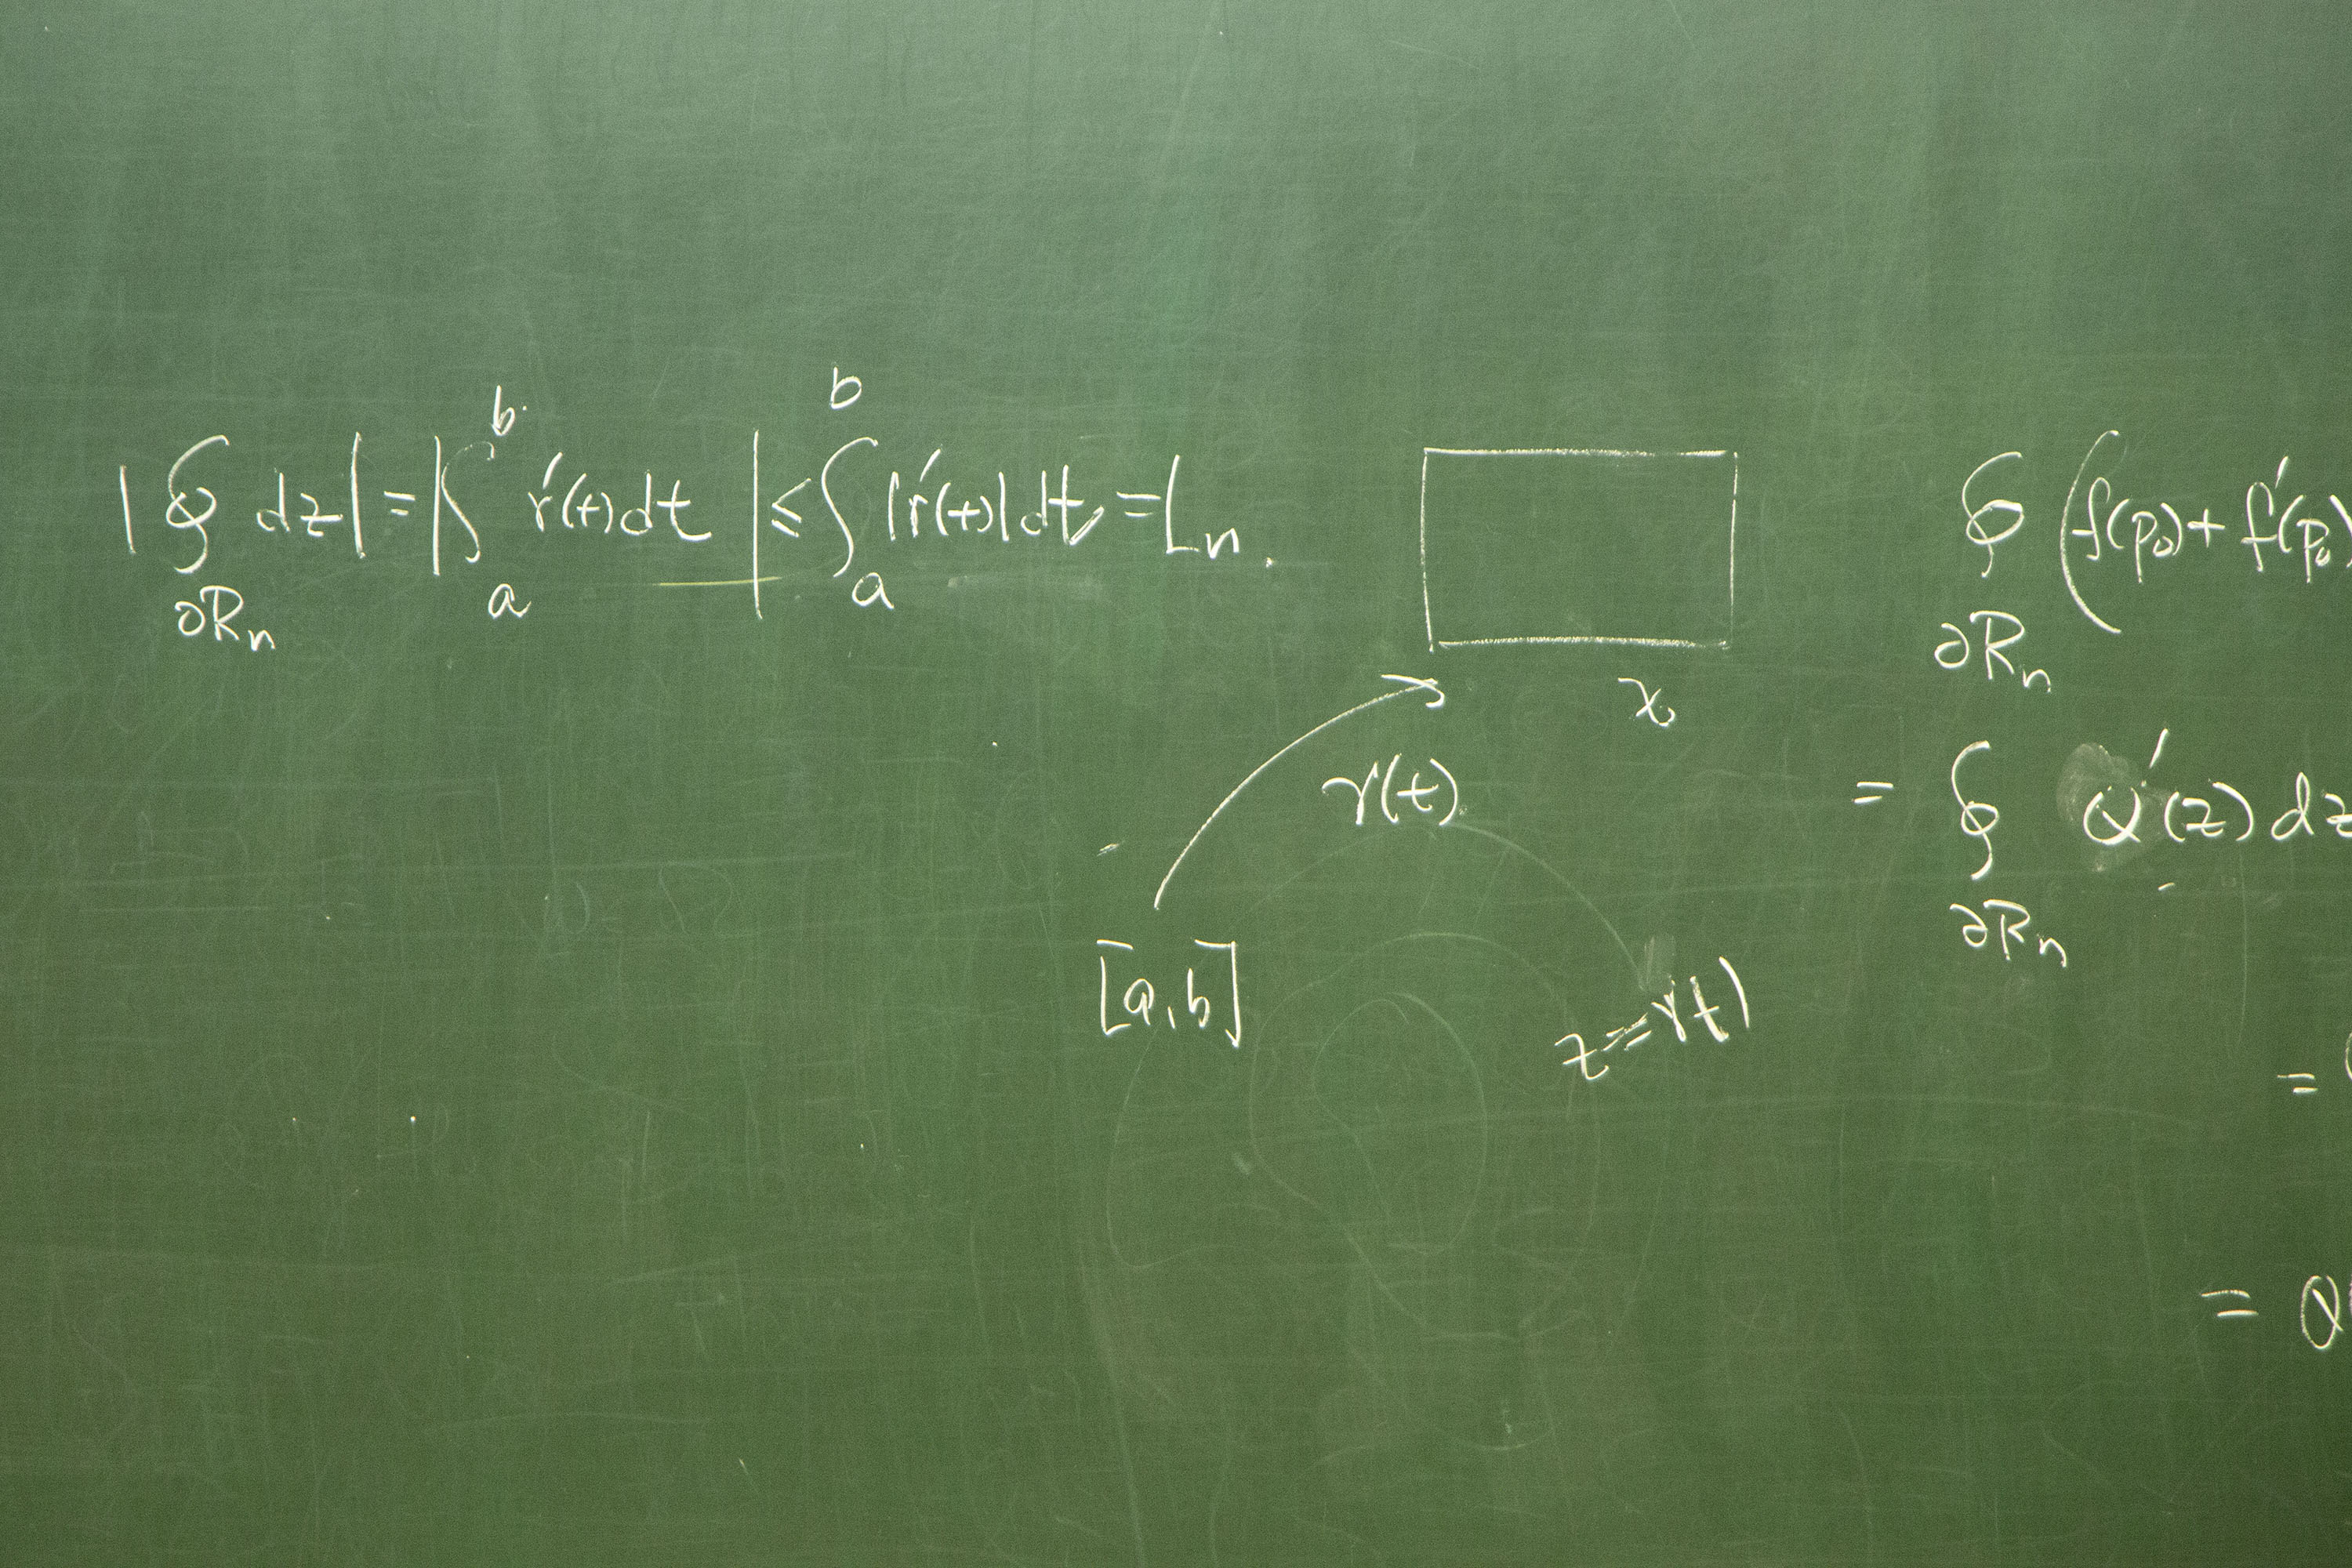 |∮_{∂Rₙ} dz| = |∫_a^b γ'(t)dt| ≤ ∫_a^b |γ'(t)|dt = Lₙ.
x
γ(t)
[a,b]
z=γ(t)
∮_{∂Rₙ} (f(p₀)+f'(p₀)
= ∮_{∂Rₙ} Q'(z)dz
=
= Q